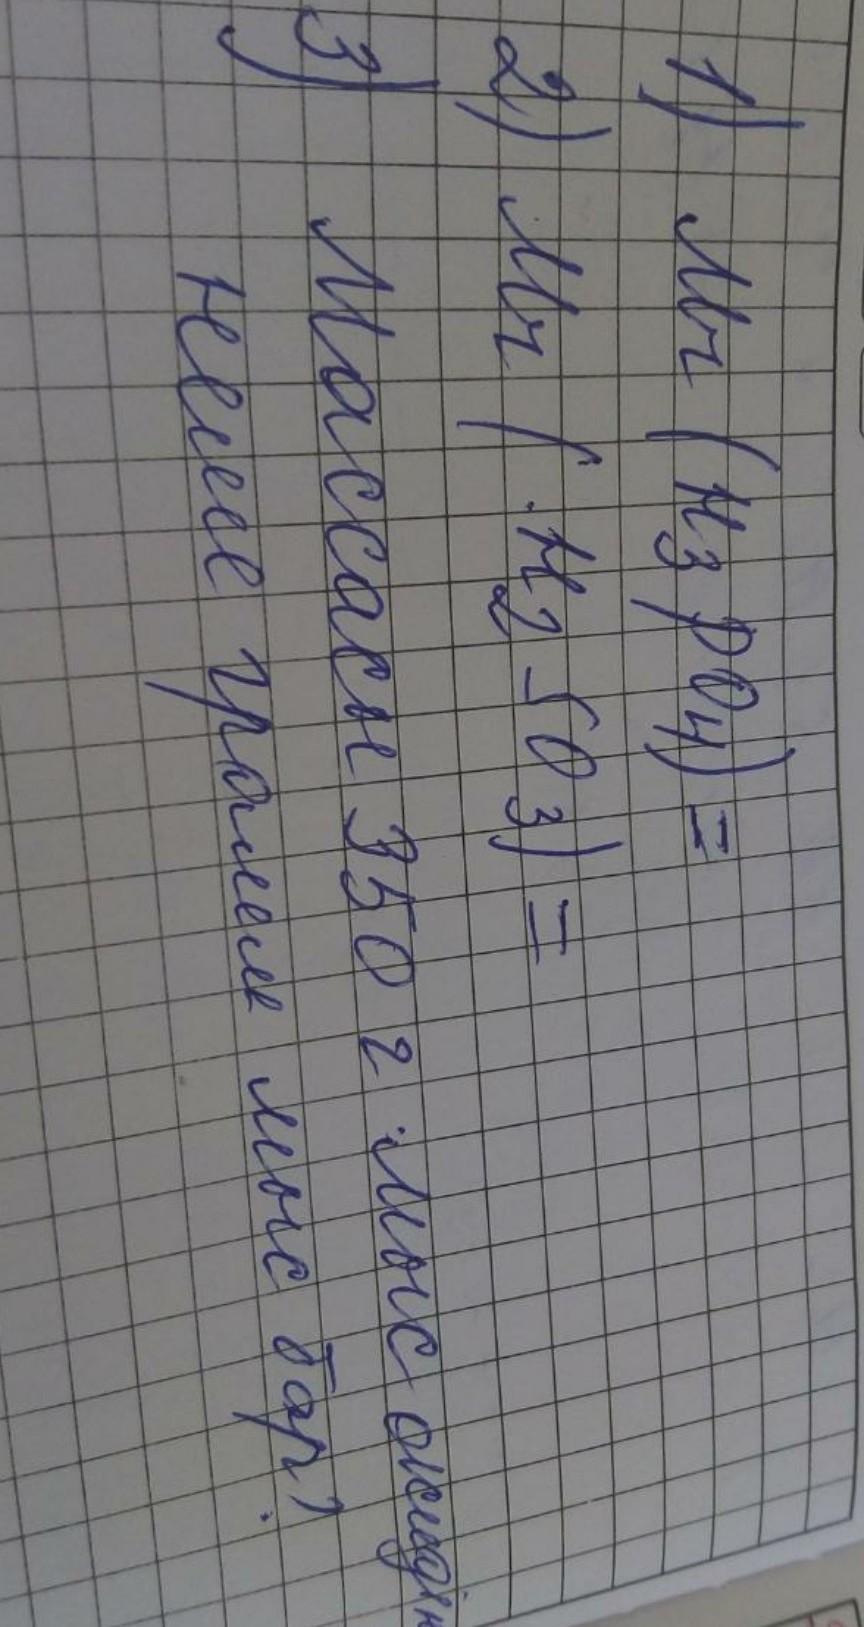 1) Mr (H3PO4) =
2) Mr (H2SO3) =
3) Массасы 350 г мыс оксидін
неше грамм мыс бар?